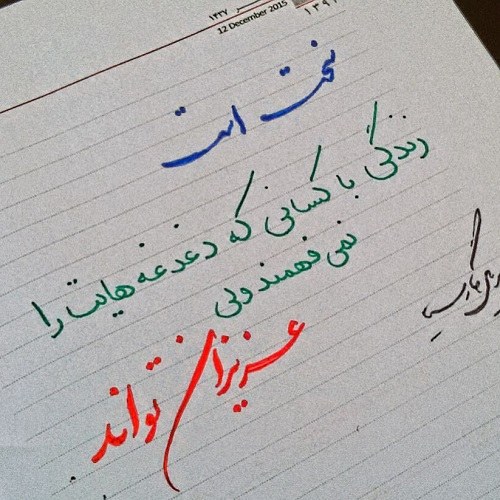 ۱۴۳۷
12 December 2015
سخت است
زندگی با کسانی که دغدغه هایت را
نمی فهمند ولی
عزیزان تواند